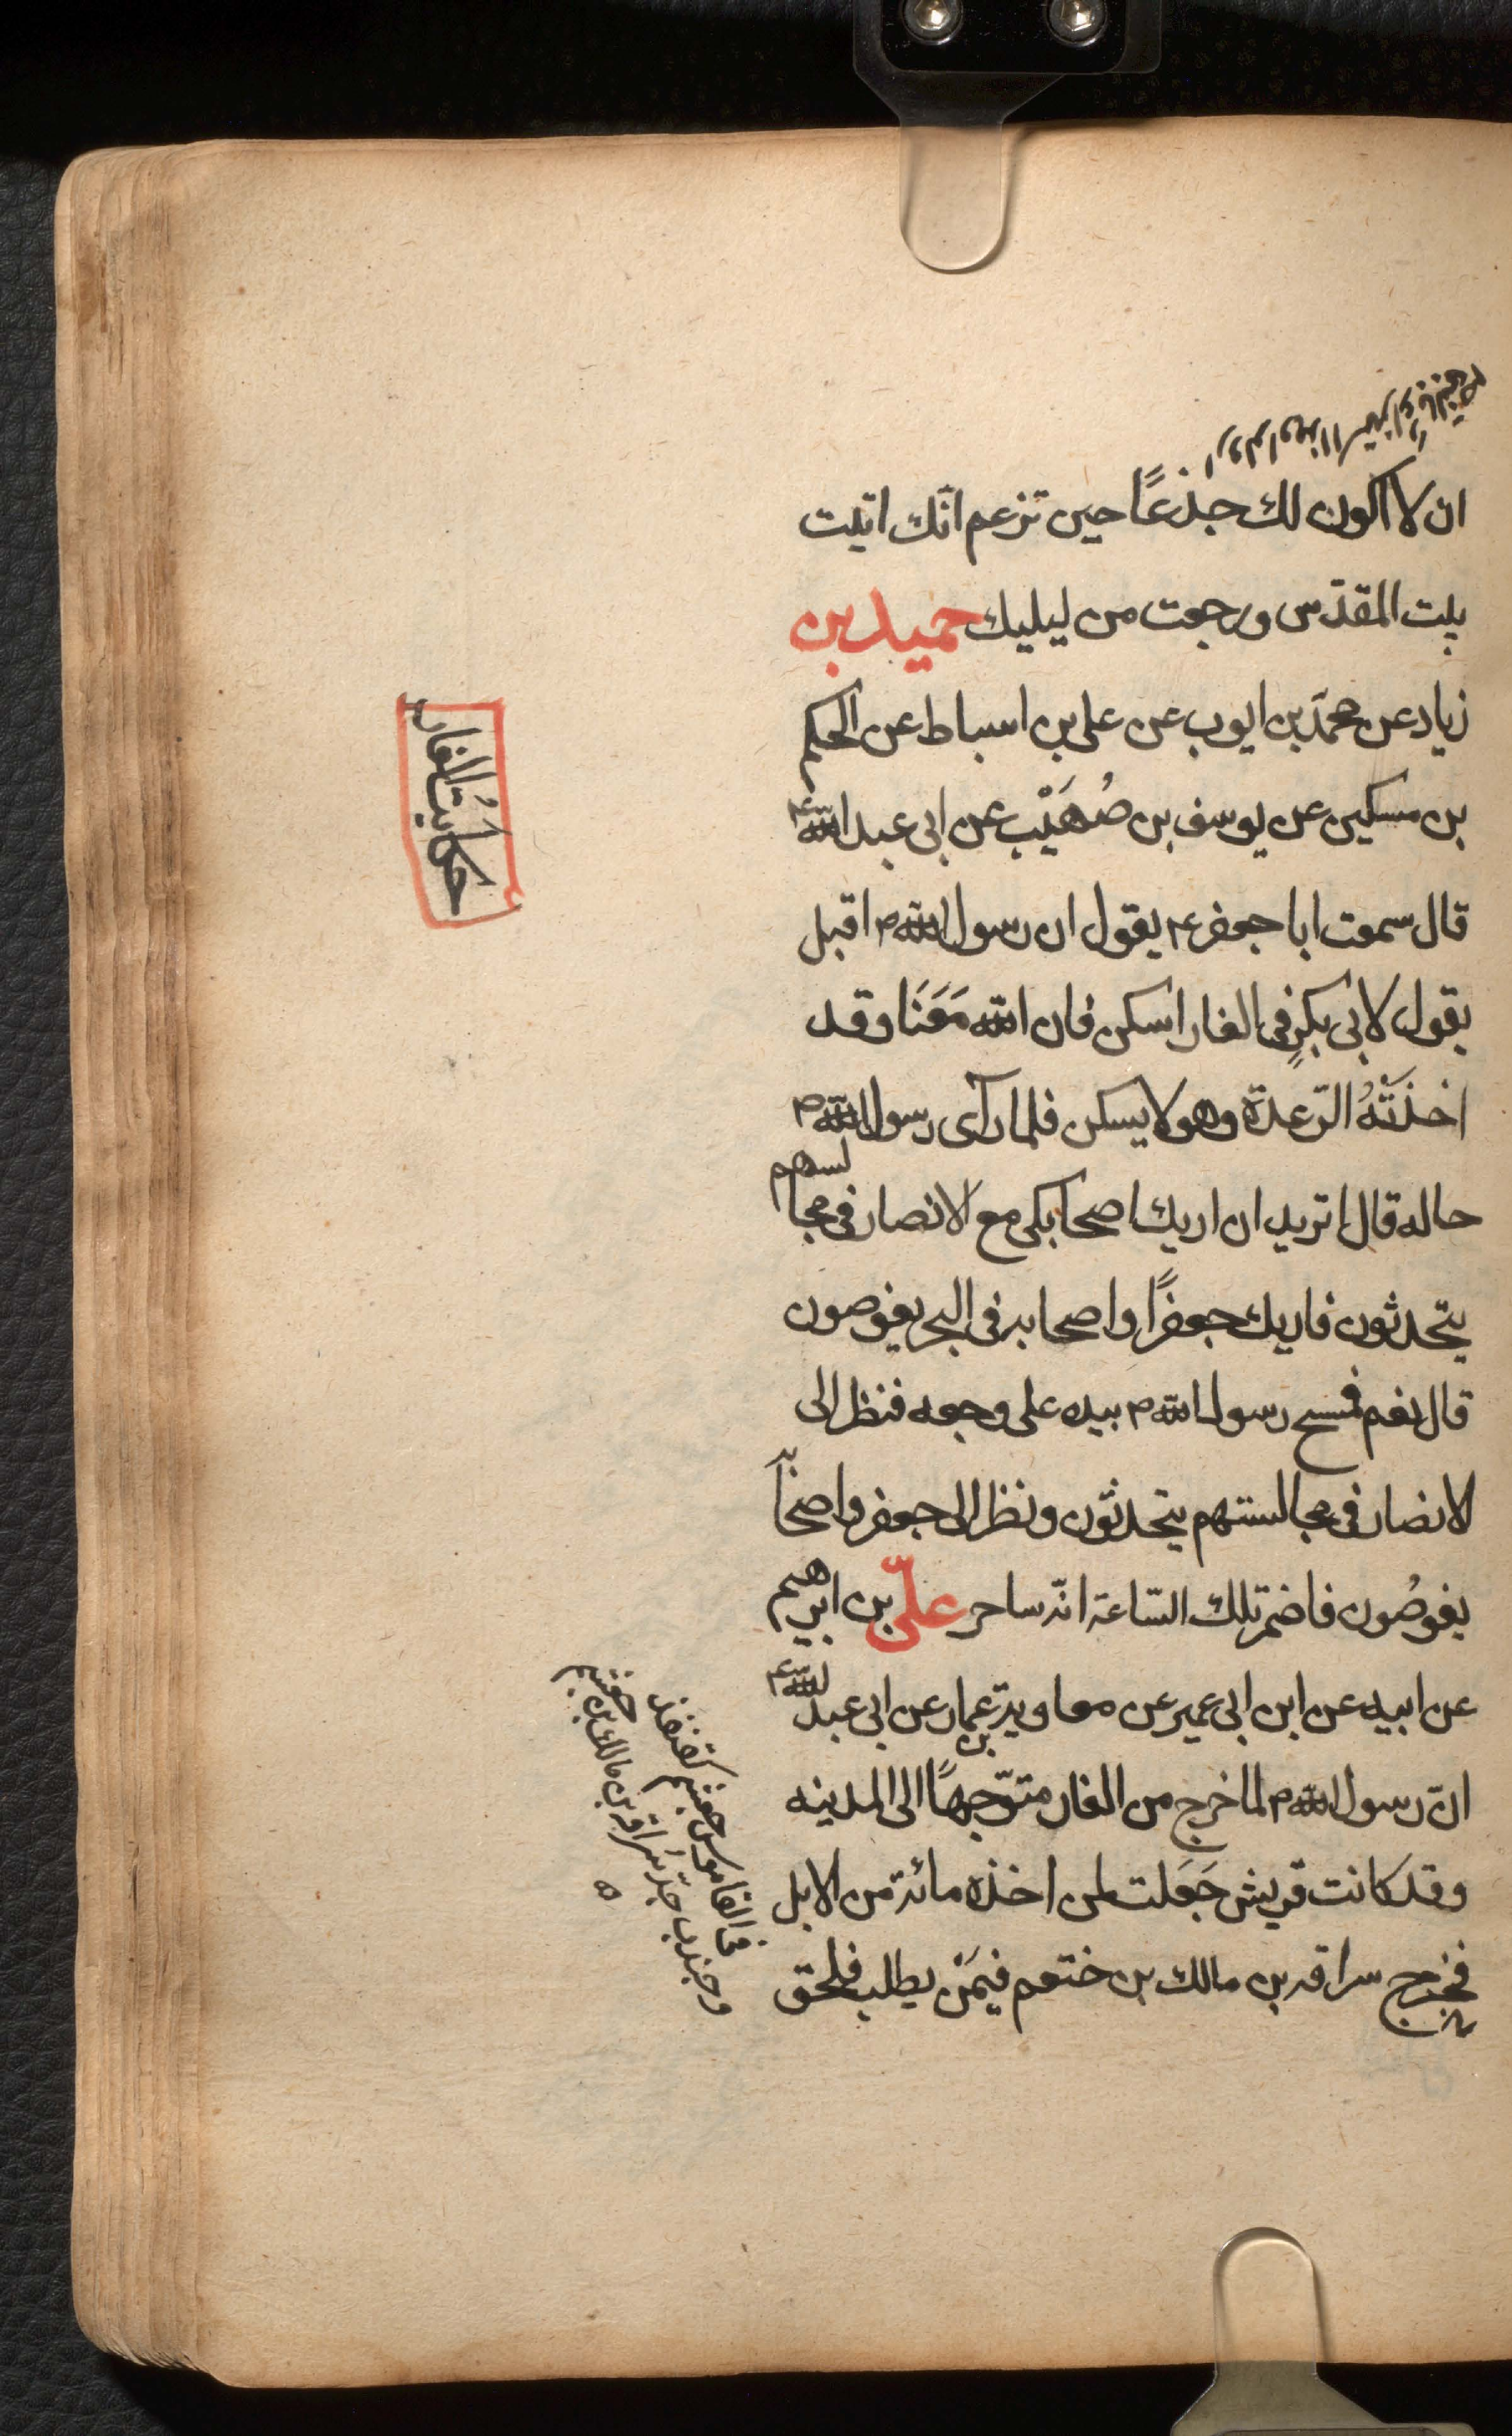 ان لا اكون لك جذعًا حين تزعم انّك اتيت
بيت المقدّس ورجعت من ليليك حميد بن
زياد عن محمّد بن ايوب عن على بن اسباط عن الحكم
بن مسكين عن يوسف بن صُهَيْب عن ابى عبد الله ع
قال سمعت ابا جعفر ع يقول ان رسول الله ص اقبل
يقول لابى بكرٍ فى الغار اسكن فان الله مَعَنَا وقد
اخذَتْهُ الرّعدة وهو لا يسكن فلما رآى رسول الله ص
حاله قال اتريد ان اريك اصحابكى مع الانصار فى مجالسهم
يتحدثون فاريك جعفرًا واصحابه فى البحر يغوصون
قال نعم فمسح رسول الله ص بيده على وجهه فنظر الى
الانصار فى مجالستهم يتحدثون ونظر الى جعفر واصحابه
يغوصُون فاضمر تلك السّاعة انّه ساحر علىّ بن ابرهيم
عن ابيه عن ابن ابى عمير عن معاوية بن عمار عن ابى عبد الله ع
انّ رسول الله ص لما خرج من الغار متوّجهًا الى المدينه
وقد كانت قريش جَعَلت لمن اخذه مائة من الابل
فخرج سراقه بن مالك بن ختعم فيمَنْ يطلب فلحق
حكايتُ الغار
فى القاموس جعشم كقنفذ
وجندب جدّ سُراقة بن مالك بن جعشم